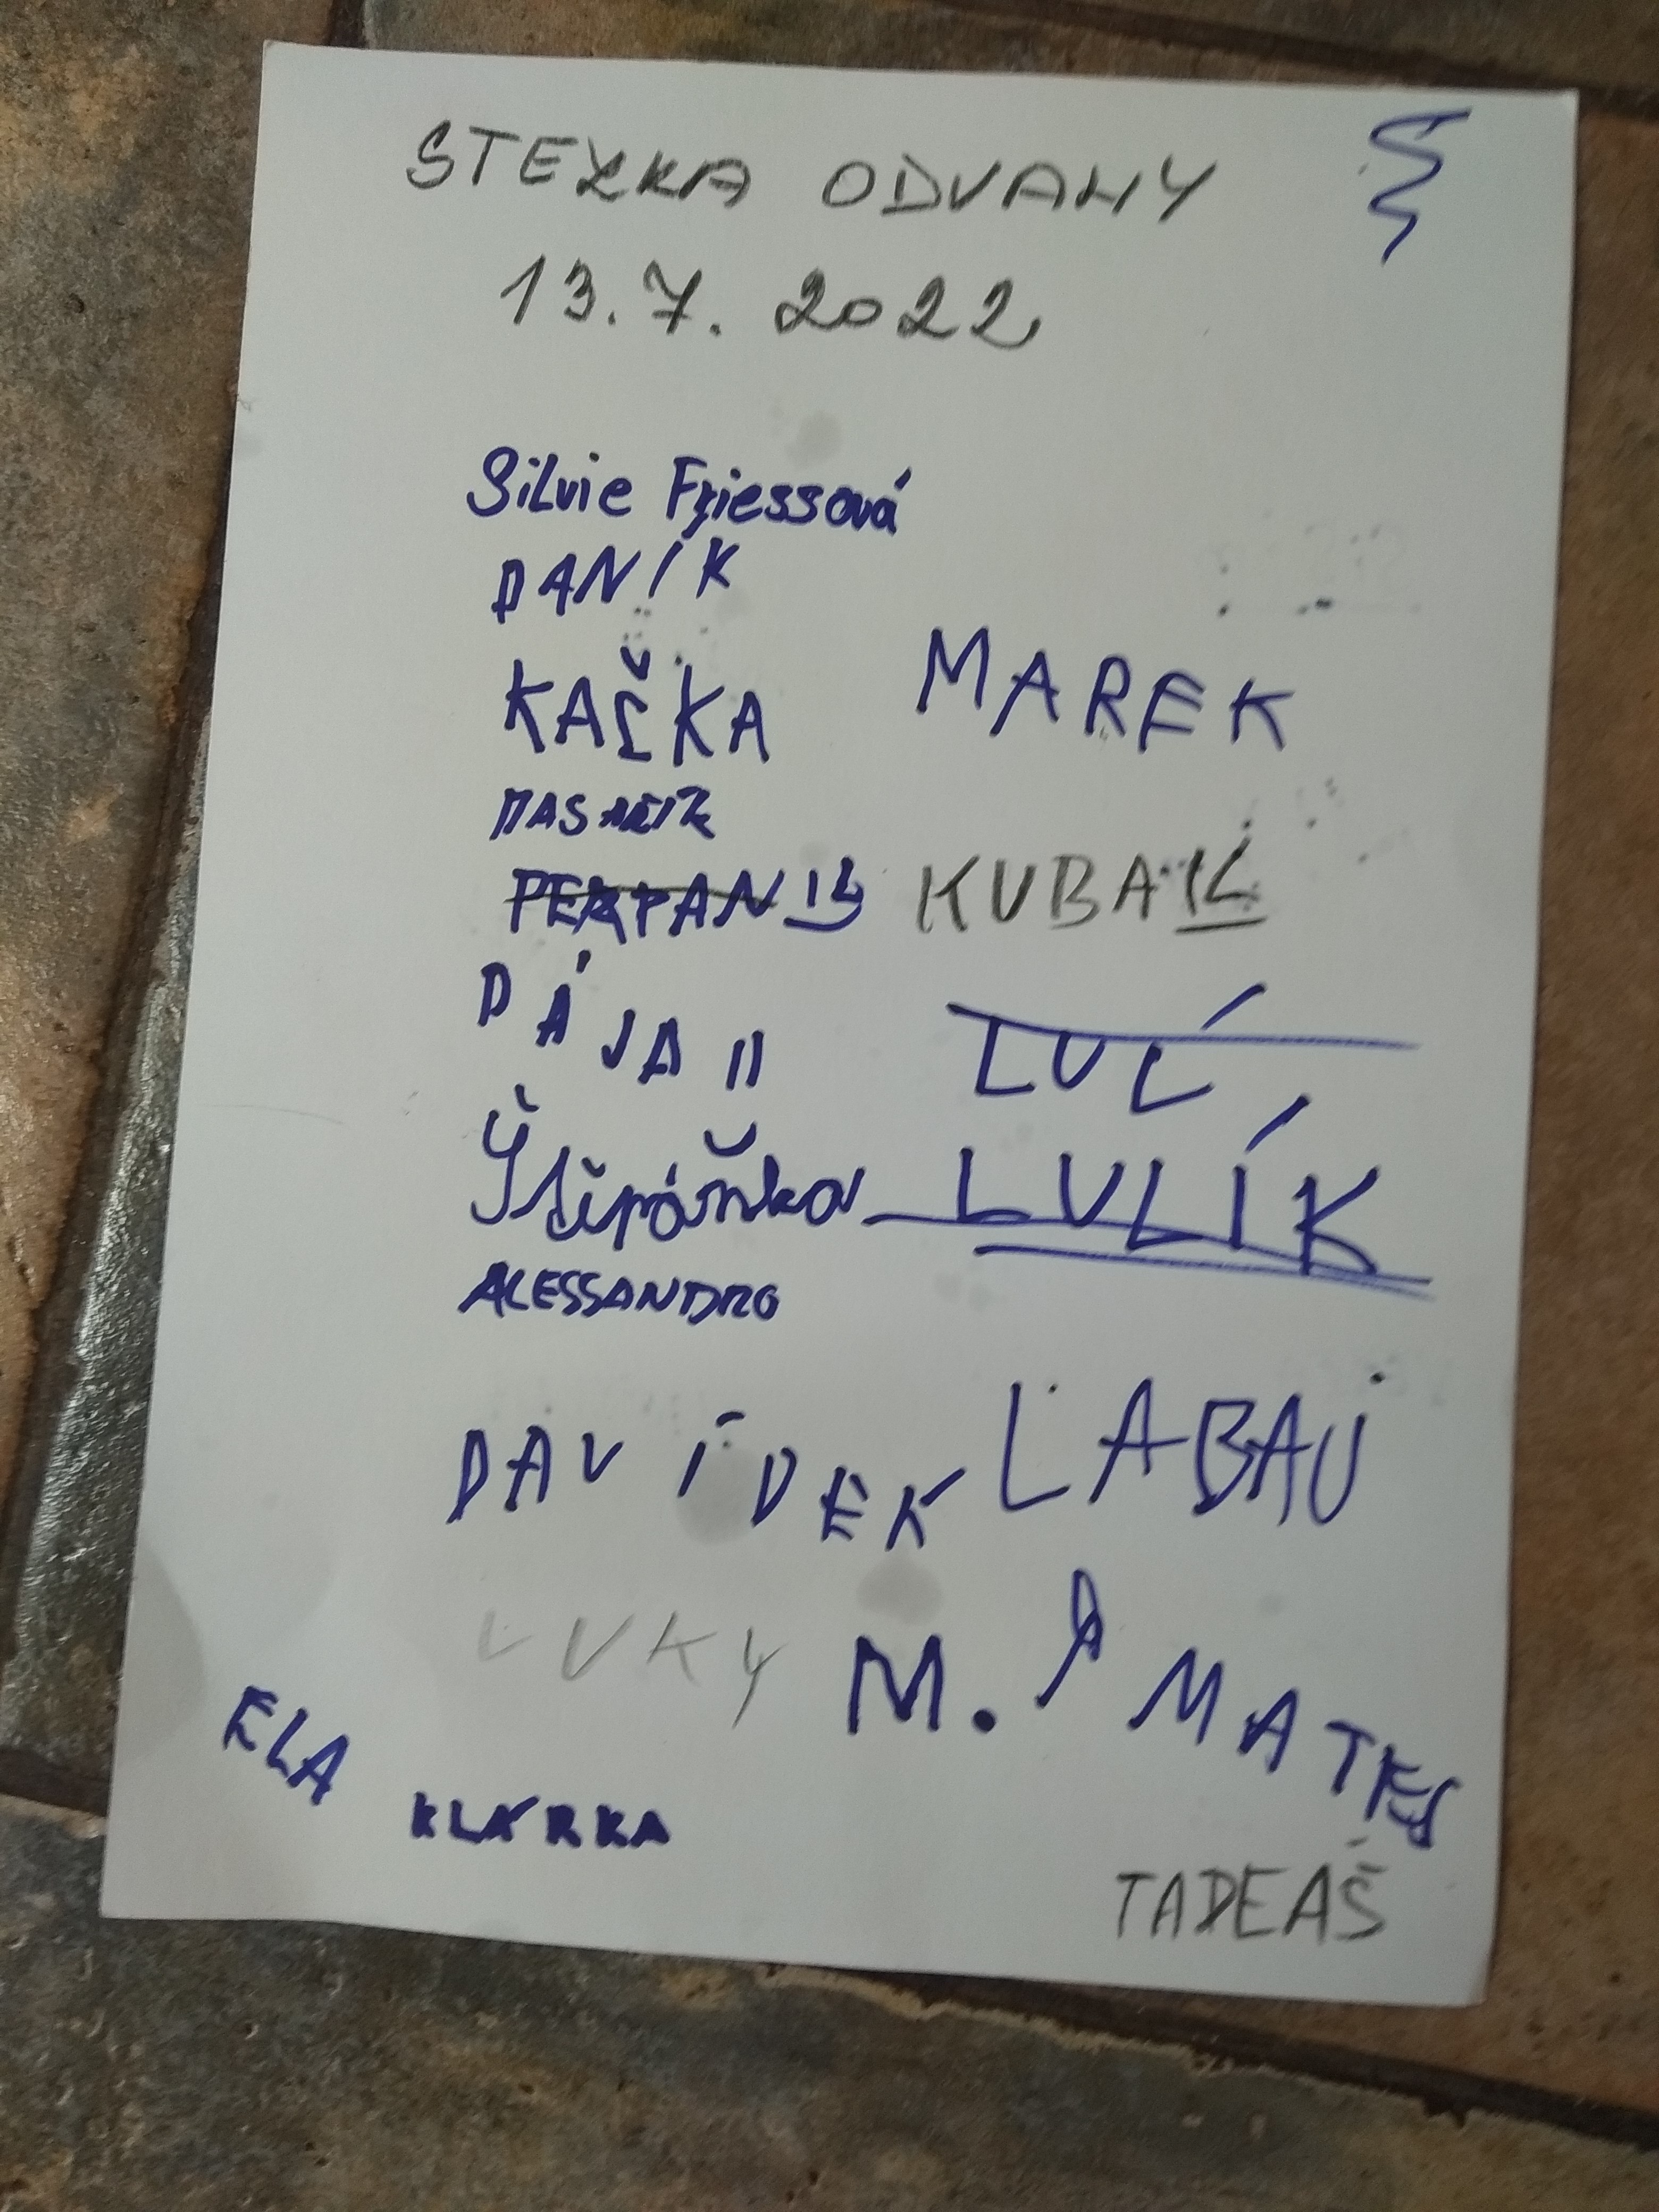 STEZKA ODVAHY
13.7.2022
Silvie Friessová
DANÍK
KAČKA MAREK
MASARIK
KUBA
DÁJA II
LUĹ
Štěpáňka LULÍK
ALESSANDRO
DAVÍDEK LABAU
LUKY M. MATES
ELA
KLÁRKA
TADEÁŠ